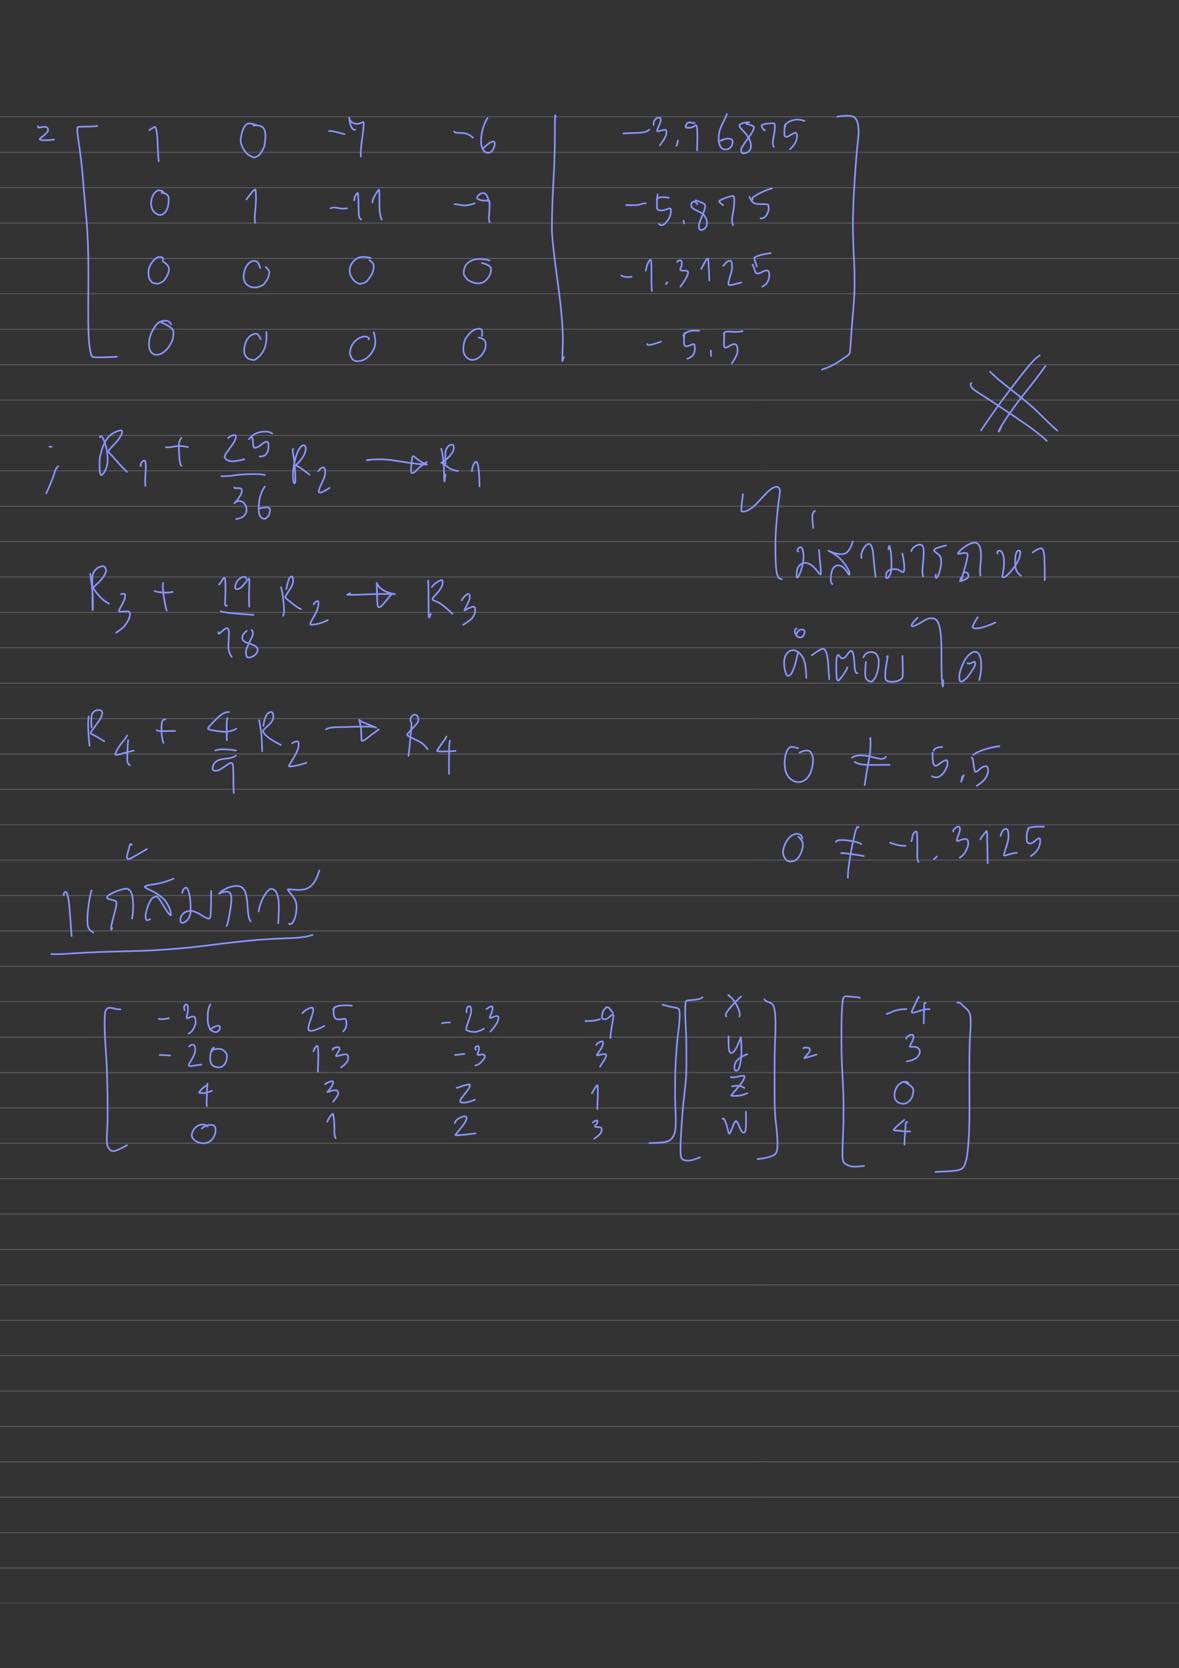 = [ 1 0 -7 -6 | -3.96875 ]
0 1 -11 -9 | -5.875
0 0 0 0 | -1.3125
0 0 0 0 | -5.5
; R₁ + 25/36 R₂ → R₁
R₃ + 19/18 R₂ → R₃
R₄ + 4/9 R₂ → R₄
ไม่สามารถหา
คำตอบได้
0 ≠ 5.5
0 ≠ -1.3125
แก้สมการ
[ -36 25 -23 -9 ] [ x ] = [ -4 ]
-20 13 -3 3 y 3
4 3 2 1 z 0
0 1 2 3 w 4